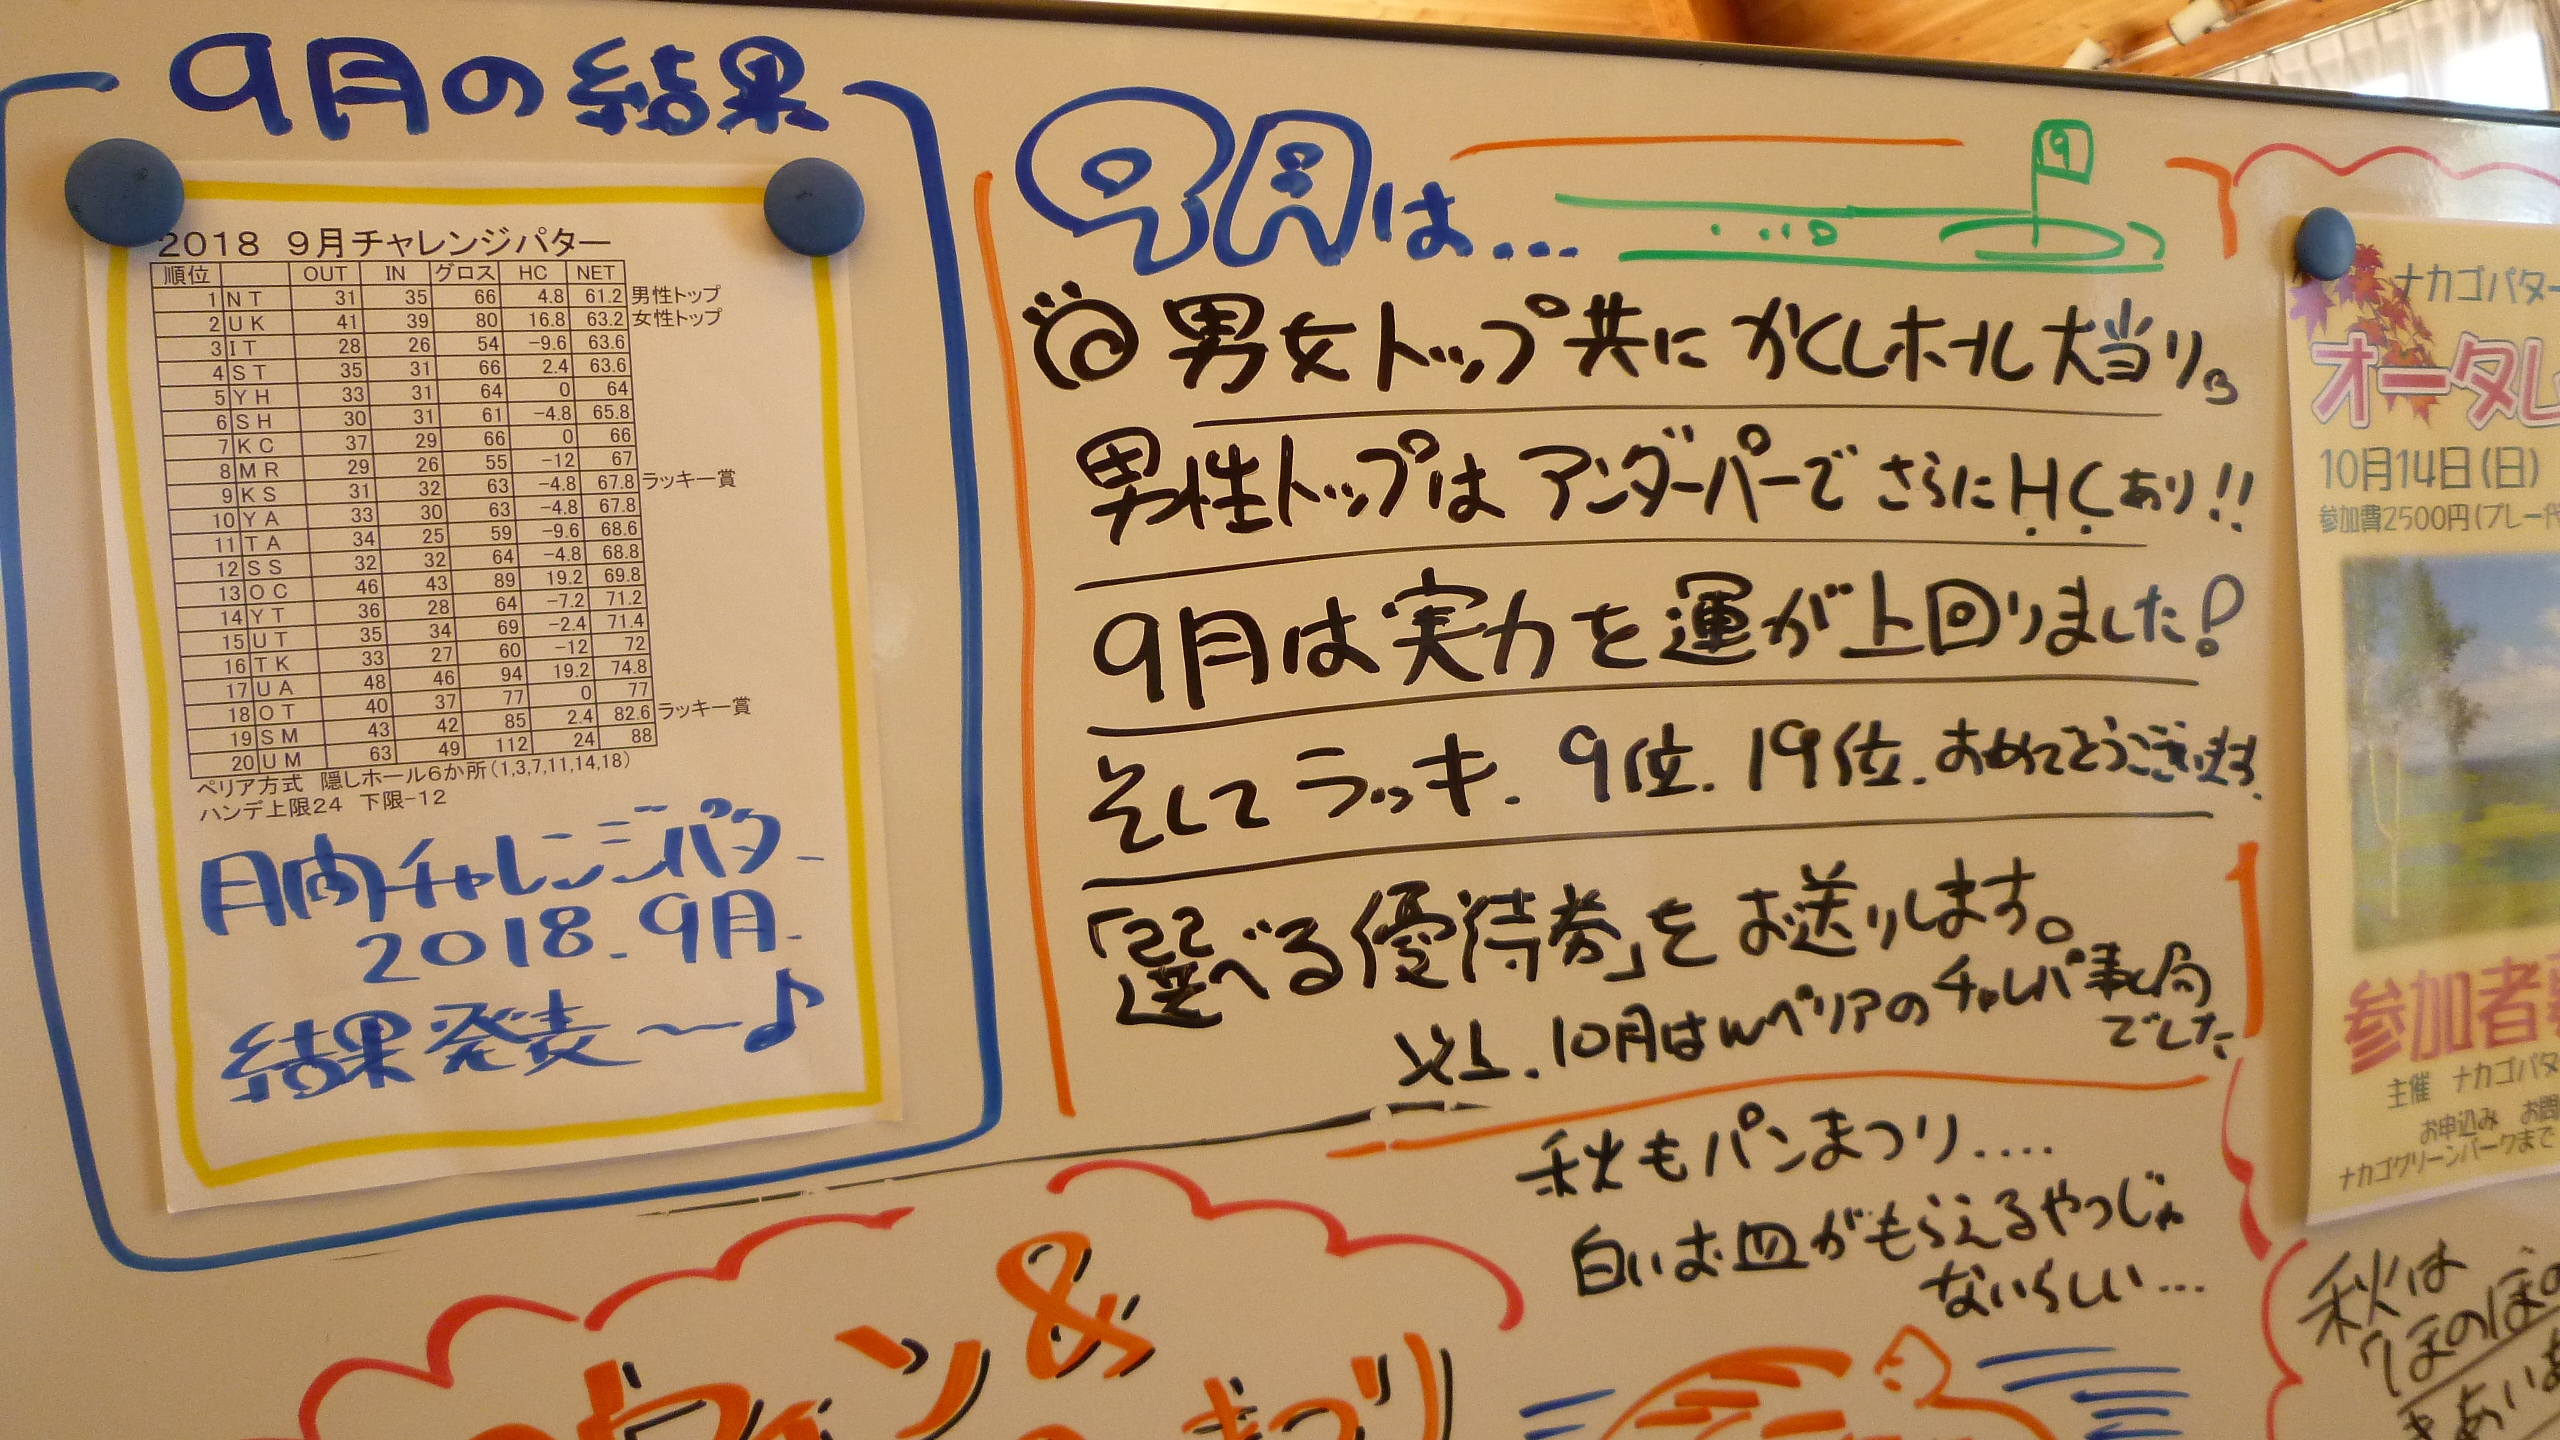 9月の結果
2018 9月チャレンジパター
順位 OUT IN グロス HC NET
1 NT 31 35 66 4.8 61.2 男性トップ
2 UK 41 39 80 16.8 63.2 女性トップ
3 IT 28 26 54 -9.6 63.6
4 ST 35 31 66 2.4 63.6
5 YH 33 31 64 0 64
6 SH 30 31 61 -4.8 65.8
7 KC 37 29 66 0 66
8 MR 29 26 55 -12 67
9 KS 31 32 63 -4.8 67.8 ラッキー賞
10 YA 33 30 63 -4.8 67.8
11 TA 34 25 59 -9.6 68.6
12 SS 32 32 64 -4.8 68.8
13 OC 46 43 89 19.2 69.8
14 YT 36 28 64 -7.2 71.2
15 UT 35 34 69 -2.4 71.4
16 TK 33 27 60 -12 72
17 UA 48 46 94 19.2 74.8
18 OT 40 37 77 0 77
19 SM 43 42 85 2.4 82.6 ラッキー賞
20 UM 63 49 112 24 88
ペリア方式 隠しホール6か所(1,3,7,11,14,18)
ハンデ上限24 下限-12
月内チャレンジパター
2018.9月.
結果発表～♪
9月は...
9
男女トップ共にかくしホール大当り。
男性トップはアンダーパーでさらにH.C.あり!!
9月は実力を運が上回りました!
そしてラッキー. 9位. 19位. おめでとうございます.
「選べる優待券」をお送りします。
以上. 10月はWペリアのチャレパ事ム局
でした
秋もパンまつり....
白いお皿がもらえるやつじゃ
ないらしい...
&
まつり
ナカゴパター
オータム
10月14日(日)
参加費2500円(プレー代
参加者募
主催 ナカゴパタ
お申込み お問
ナカゴグリーンパークまで
秋は
ほのぼの